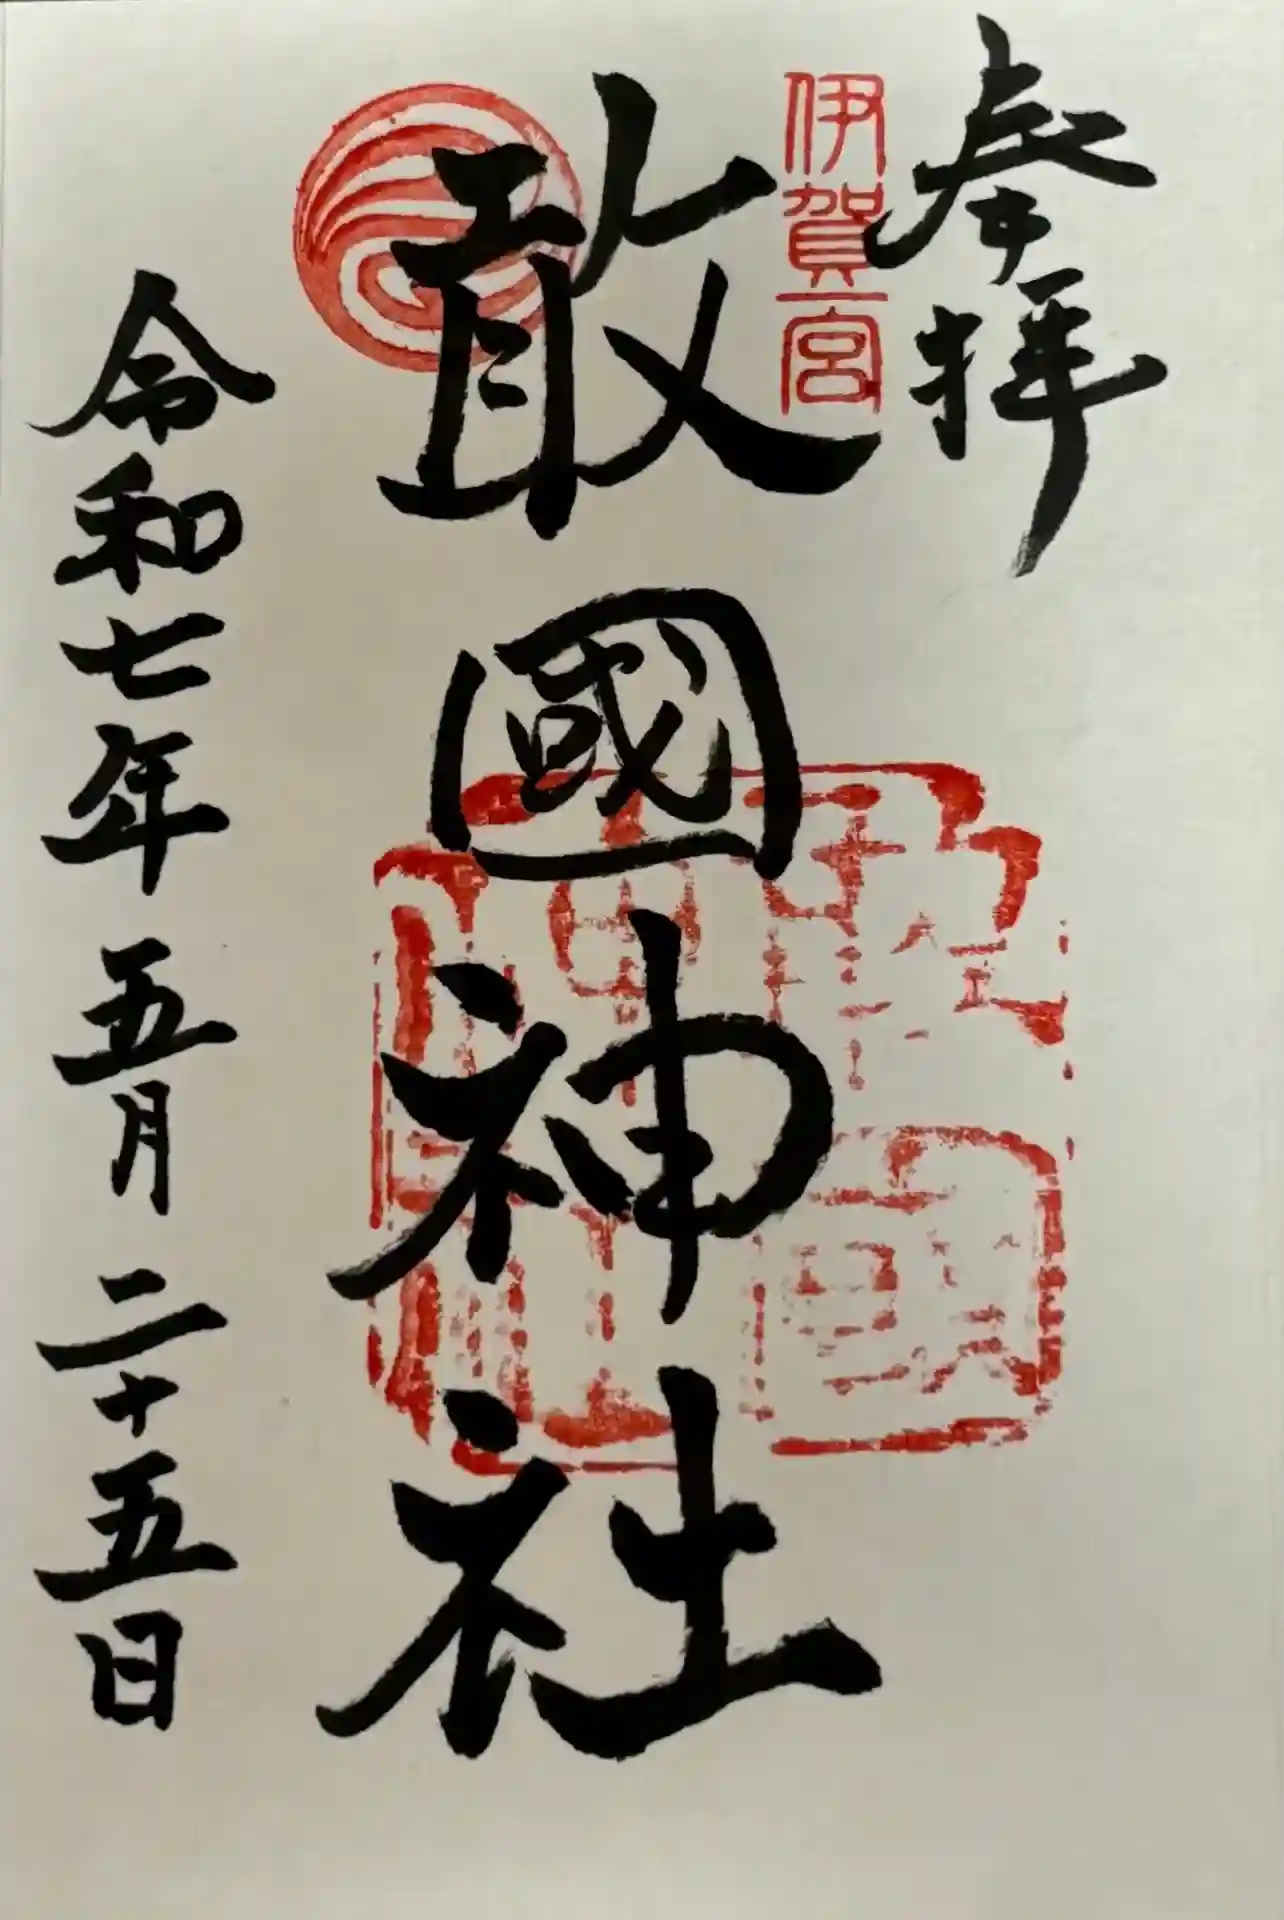 奉拝
伊賀一宮
敢國神社
令和七年 五月 二十五日